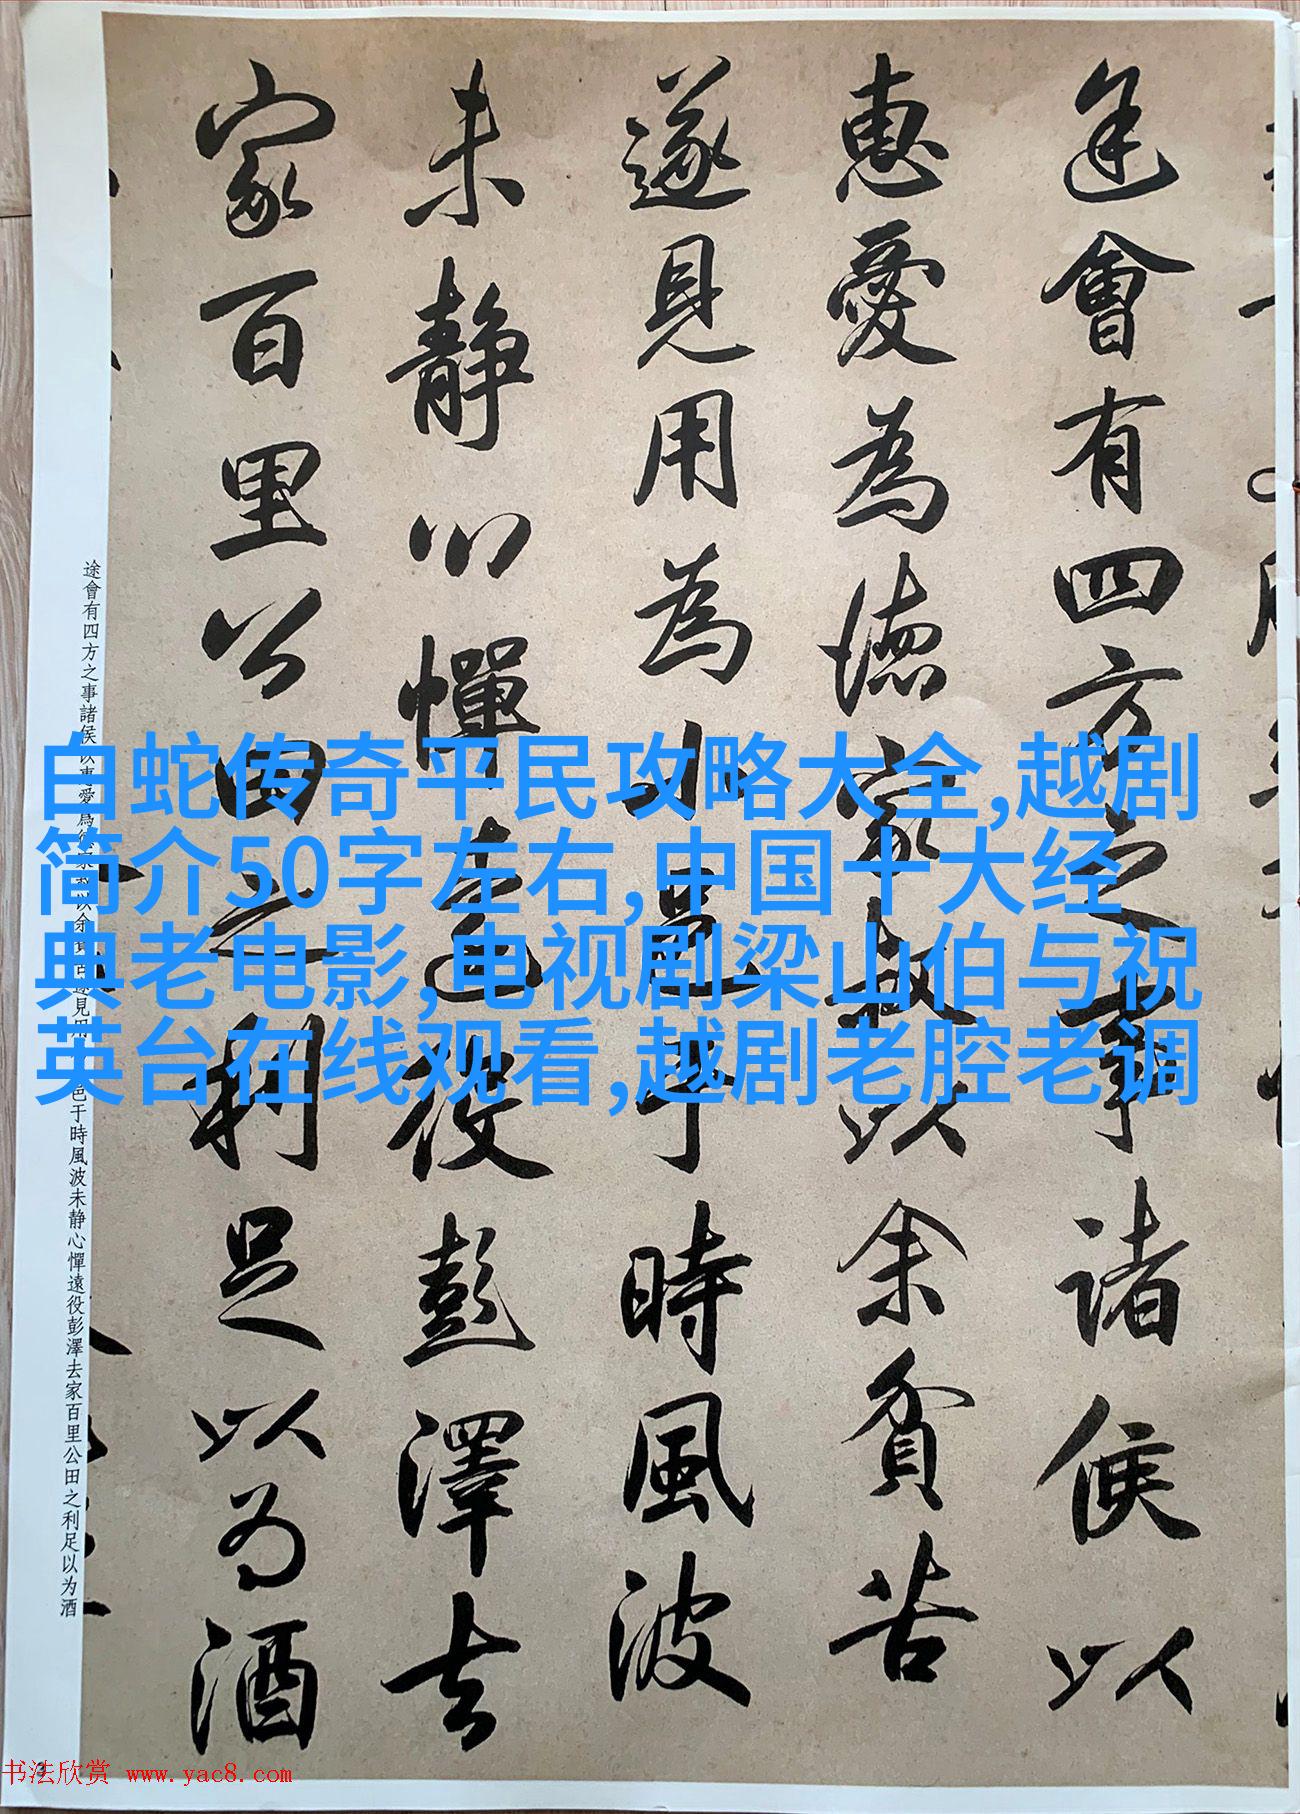 途會有四方之事諸侯以
惠愛為德家叔以余貧苦
遂見用為小邑于時風波
未靜心憚遠役彭澤去
家百里公田之利足以為酒
途會有四方之事諸侯以惠愛爲德家叔以余貧苦遂見用爲小邑于時風波未静心憚遠役彭澤去家百里公田之利足以为酒
白蛇传奇平民攻略大全,越剧
简介50字左右,中国十大经
典老电影,电视剧梁山伯与祝
英台在线观看,越剧老腔老调
书法欣赏 www.yac8.com